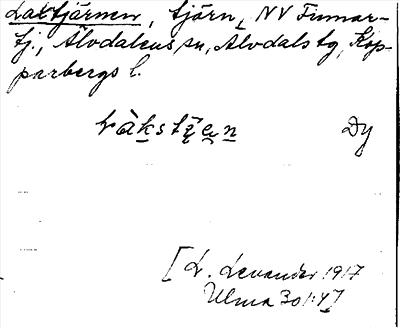 Laxtjärnen, tjärn, NV Finnar-
tj., Älvdalens sn, Älvdals tg, Kop-
parbergs l.
Dy
[L. Levander 1917
Ulma 301:4]